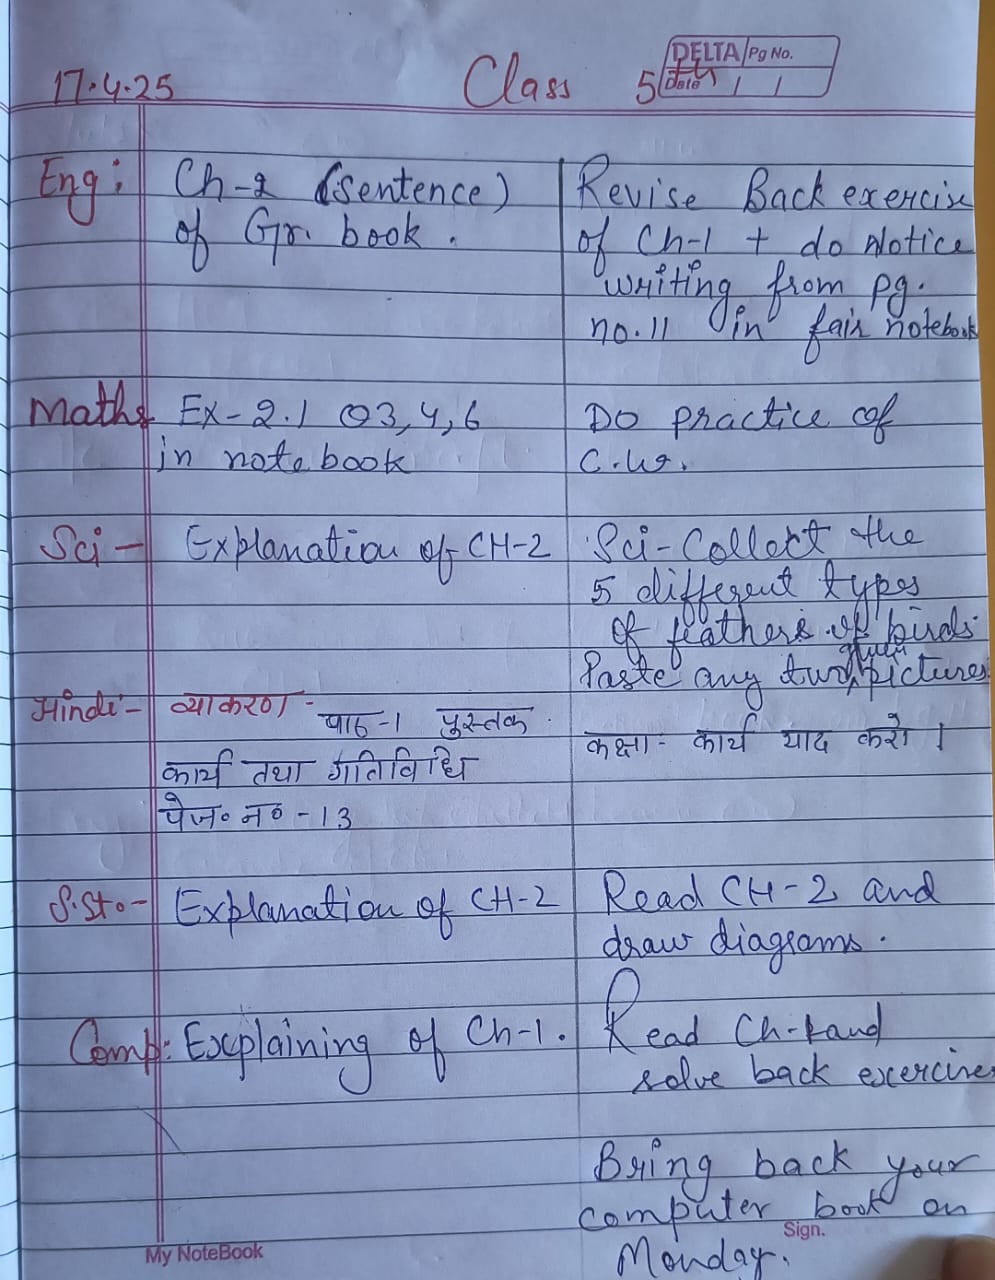 DELTA Pg No.
Date
17.4.25 Class 5th
Eng: Ch-2 (sentence)
of Gr. book.
Revise Back exercise
of Ch-1 + do Notice
writing from pg.
no.11 in fair notebook
Maths Ex-2.1 Q3,4,6
in notebook
Do practice of
C.W.
Sci- Explanation of CH-2
Sci-Collect the
5 different types
of feathers of birds
Paste any two pictures
Hindi- व्याकरण-
पाठ-1 पुस्तक
कार्य तथा गतिविधि
पेज० न० -13
कक्षा- कार्य याद करो ।
S.St.- Explanation of CH-2
Read CH-2 and
draw diagrams.
Comp: Explaining of Ch-1.
Read Ch-1 and
solve back exercise
Bring back your
computer book on
Monday.
Sign.
My NoteBook